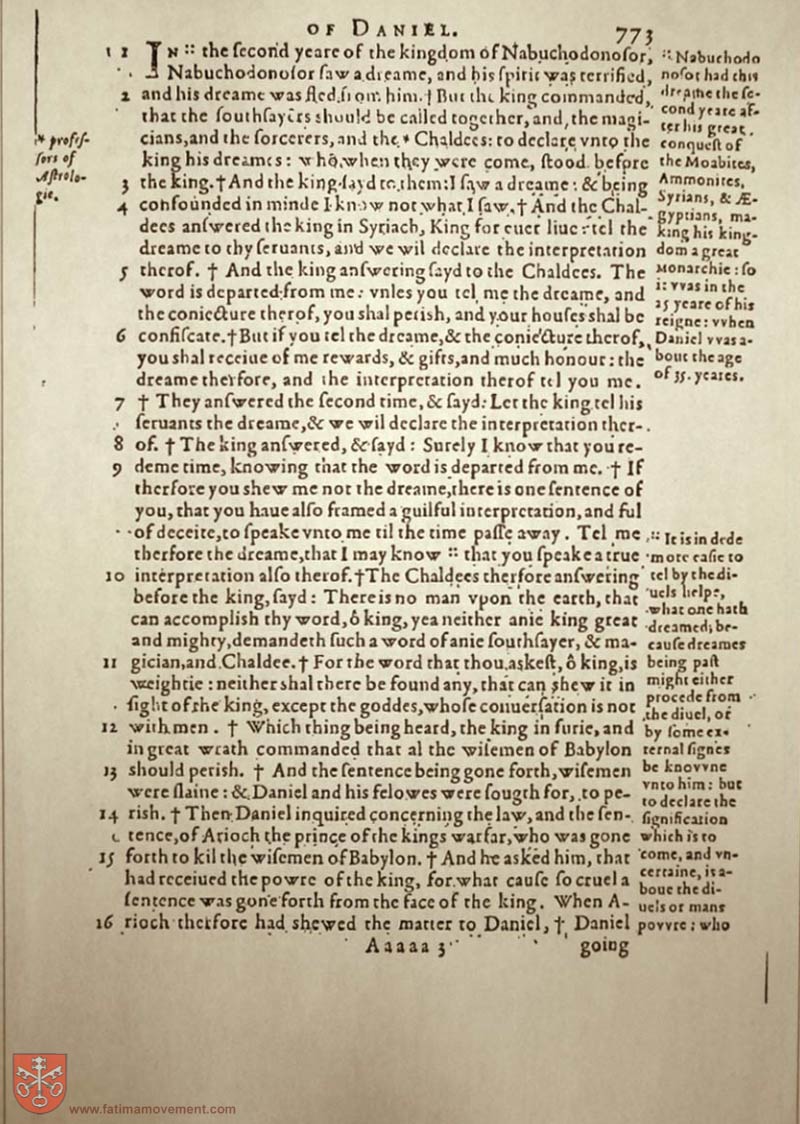 OF DANIEL. 773
1 1 IN :: the ſecond yeare of the kingdom of Nabuchodonoſor,
Nabuchodonoſor ſaw a dreame, and his ſpirit was terrified,
2 and his dreame was fled from him. † But the king commanded,
that the ſouthſayers should be called together, and, the magi-
cians, and the ſorcerers, and the * Chaldees: to declare vnto the
king his dreames: who, when they were come, ſtood before
3 the king. † And the king ſayd to them: I ſaw a dreame: & being
4 confounded in minde I know not what I ſaw. † And the Chal-
dees anſwered the king in Syriach, King for euer liue: tel the
dreame to thy ſeruants, and we wil declare the interpretation
5 therof. † And the king anſwering ſayd to the Chaldees. The
word is departed from me: vnles you tel me the dreame, and
the coniecture therof, you shal perish, and your houſes shal be
6 confiſcate. † But if you tel the dreame, & the coniecture therof,
you shal receiue of me rewards, & gifts, and much honour: the
dreame therfore, and the interpretation therof tel you me.
7 † They anſwered the ſecond time, & ſayd: Let the king tel his
ſeruants the dreame, & we wil declare the interpretation ther-
8 of. † The king anſwered, & ſayd: Surely I know that you re-
9 deme time, knowing that the word is departed from me. † If
therfore you shew me not the dreame, there is one ſentence of
you, that you haue alſo framed a guilful interpretation, and ful
of deceite, to ſpeake vnto me til the time paſſe away. Tel me
therfore the dreame, that I may know :: that you ſpeake a true
10 interpretation alſo therof. † The Chaldees therfore anſwering
before the king, ſayd: There is no man vpon the earth, that
can accomplish thy word, ô king, yea neither anie king great
and mighty, demandeth ſuch a word of anie ſouthſayer, & ma-
11 gician, and Chaldee. † For the word that thou aſkeſt, ô king, is
weightie: neither shal there be found any, that can shew it in
ſight of the king, except the goddes, whoſe conuerſation is not
12 with men. † Which thing being heard, the king in furie, and
in great wrath commanded that al the wiſemen of Babylon
13 should perish. † And the ſentence being gone forth, wiſemen
were ſlaine: & Daniel and his felowes were ſougth for, to pe-
14 rish. † Then Daniel inquired concerning the law, and the ſen-
tence, of Arioch the prince of the kings warfar, who was gone
15 forth to kil the wiſemen of Babylon. † And he aſked him, that
had receiued the powre of the king, for what cauſe ſo cruel a
ſentence was gone forth from the face of the king. When A-
16 rioch therfore had shewed the matter to Daniel, † Daniel
Aaaaa 3 going
* profeſ-
ſors of
Aſtrolo-
gie.
:: Nabuchodo
noſor had this
dreame the ſe-
cond yeare af-
ter his great
conqueſt of
the Moabites,
Ammonites,
Syrians, & Æ-
gyptians, ma-
king his king-
dom a great
Monarchie: ſo
it vvas in the
25 yeare of his
reigne: vvhen
Daniel vvas a-
bout the age
of 35. yeares.
:: It is in dede
more eaſie to
tel by the di-
uels helpe,
what one hath
dreamed; be-
cauſe dreames
being paſt
might either
procede from
the diuel, or
by ſome ex-
ternal ſignes
be knovvne
vnto him: but
to declare the
ſignification
which is to
come, and vn-
certaine, is a-
boue the di-
uels or mans
povvre: who
www.fatimamovement.com